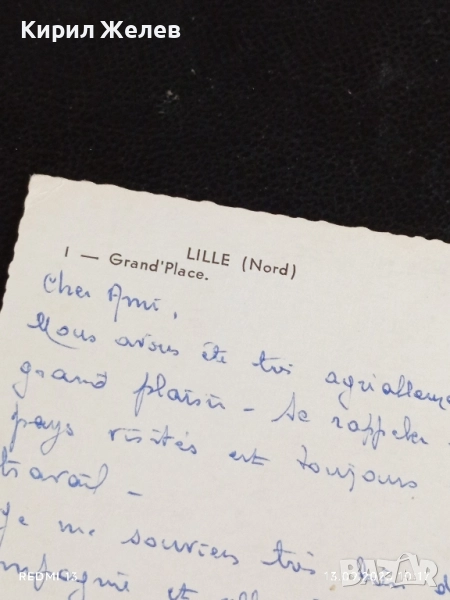 Кирил Желев
LILLE (Nord)
I — Grand'Place.
Cher Ami,
Nous avons été très agréablem
grand plaisir – Se rappeler
pays visités est toujours
travail –
Je me souviens très bien d
mpagnie et
REDMI 13
BAZAR